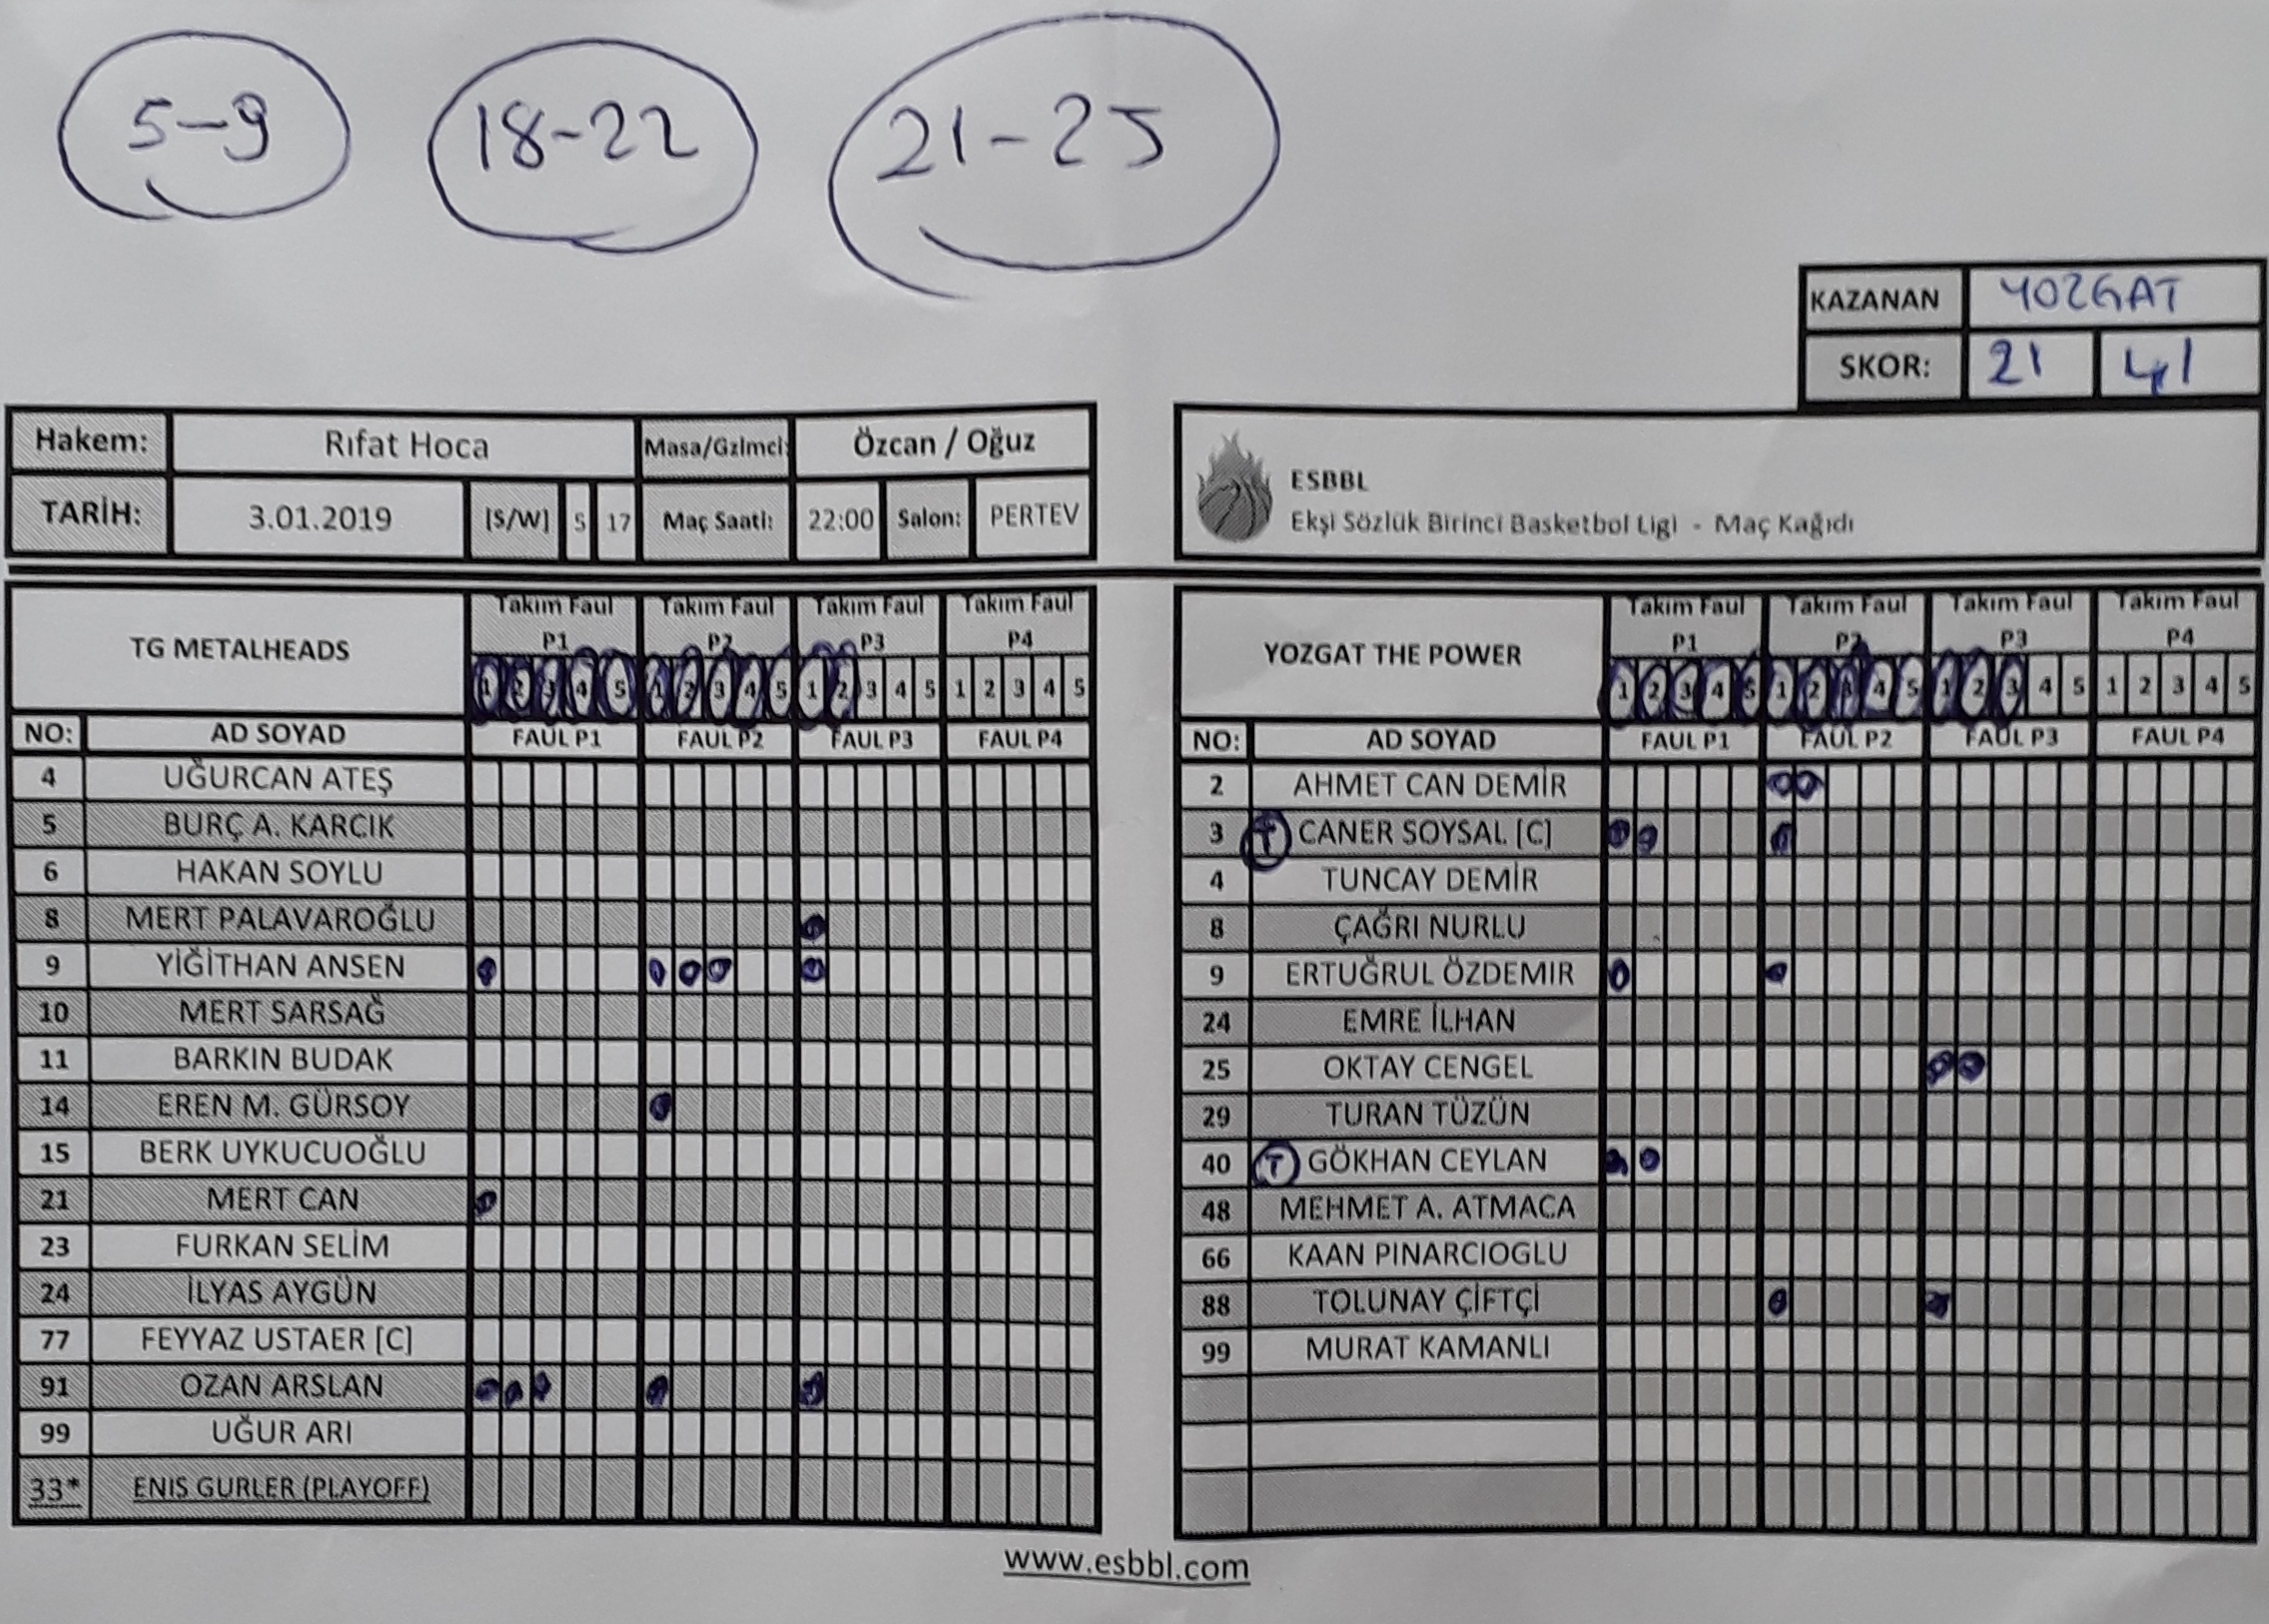 5-9 18-22 21-25
KAZANAN YOZGAT
SKOR: 21 41
Hakem: Rıfat Hoca Masa/Gzlmci: Özcan / Oğuz
TARİH: 3.01.2019 [S/W] 5 17 Maç Saati: 22:00 Salon: PERTEV
ESBBL
Ekşi Sözlük Birinci Basketbol Ligi - Maç Kağıdı
TG METALHEADS
Takım Faul P1 Takım Faul P2 Takım Faul P3 Takım Faul P4
1 2 3 4 5 1 2 3 4 5 1 2 3 4 5 1 2 3 4 5
NO: AD SOYAD FAUL P1 FAUL P2 FAUL P3 FAUL P4
4 UĞURCAN ATEŞ
5 BURÇ A. KARCIK
6 HAKAN SOYLU
8 MERT PALAVAROĞLU
9 YİĞİTHAN ANSEN
10 MERT SARSAĞ
11 BARKIN BUDAK
14 EREN M. GÜRSOY
15 BERK UYKUCUOĞLU
21 MERT CAN
23 FURKAN SELİM
24 İLYAS AYGÜN
77 FEYYAZ USTAER [C]
91 OZAN ARSLAN
99 UĞUR ARI
33* ENIS GURLER (PLAYOFF)
YOZGAT THE POWER
Takım Faul P1 Takım Faul P2 Takım Faul P3 Takım Faul P4
1 2 3 4 5 1 2 3 4 5 1 2 3 4 5 1 2 3 4 5
NO: AD SOYAD FAUL P1 FAUL P2 FAUL P3 FAUL P4
2 AHMET CAN DEMİR
3 T CANER SOYSAL [C]
4 TUNCAY DEMİR
8 ÇAĞRI NURLU
9 ERTUĞRUL ÖZDEMIR
24 EMRE İLHAN
25 OKTAY CENGEL
29 TURAN TÜZÜN
40 T GÖKHAN CEYLAN
48 MEHMET A. ATMACA
66 KAAN PINARCIOGLU
88 TOLUNAY ÇİFTÇİ
99 MURAT KAMANLI
www.esbbl.com